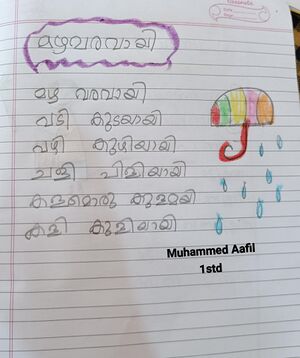 മഴവരവായി
മഴ വരവായി
പടി കുടയായി
പഴി കുഴിയായി
ചളി പിളിയായി
കളമൊരു കുളമായി
കളി കുളിയായി
Muhammed Aafil
1std